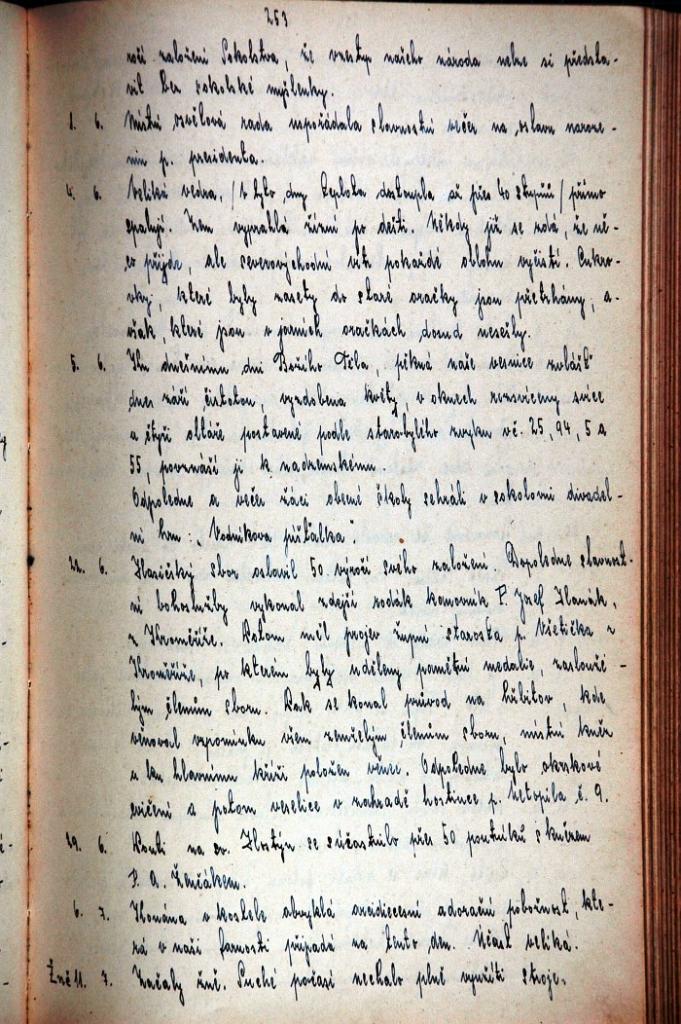 253
ročí založení Sokolstva, že vzestup našeho národa nelze si předsta-
vit bez sokolské myšlenky.
1. 6. Místní osvětová rada uspořádala slavnostní večer na oslavu naroze-
nin p. presidenta.
4. 6. Veliká vedra, /v tyto dny teplota dostoupla až přes 40 stupňů/ přímo
spalují. Zem vyprahlá žízní po dešti. Někdy již se zdá, že ně-
co přijde, ale severovýchodní vítr pokaždé oblohu vyčistí. Cukro-
vky, které byly zasety do staré oračky jsou přetrhány, a-
však, které jsou v jarních oračkách dosud nesešly.
5. 6. Ku dnešnímu dni Božího Těla, pěkná naše vesnice zvlášť
dnes září čistotou, vyzdobena květy, v oknech rozsvíceny svíce
a čtyři oltáře postavené podle starobylého zvyku v č. 25, 94, 5 a
55, povznáší ji k nadzemskému.
Odpoledne a večer žáci obecné školy sehráli v sokolovni divadel-
ní hru: „Vodníkova píšťalka"
22. 6. Hasičský sbor oslavil 50 výročí svého založení. Dopoledne slavnost-
ní bohoslužby vykonal zdejší rodák kanovník P. Josef Hanák,
z Kroměříže. Potom měl projev župní starosta p. Všetička z
Kroměříže, po kterém byly uděleny pamětní medaile, zaslouži-
lým členům sboru. Pak se konal průvod na hřbitov, kde
věnoval vzpomínku všem zemřelým členům sboru, místní kněz
a ku hlavnímu kříži položen věnec. Odpoledne bylo okrskové
cvičení a potom veselice v zahradě hostince p. Netopila č. 9.
29. 6. Pouti na sv. Hostýn se súčastnilo přes 50 poutníků s knězem
P. A. Ženčákem.
6. 7. Konána v kostele obvyklá arcidiecesní adorační pobožnost, kte-
rá v naší farnosti připadá na tento den. Účast veliká.
Žně 11. 7. Začaly žně. Suché počasí nechalo plně využíti stroje.